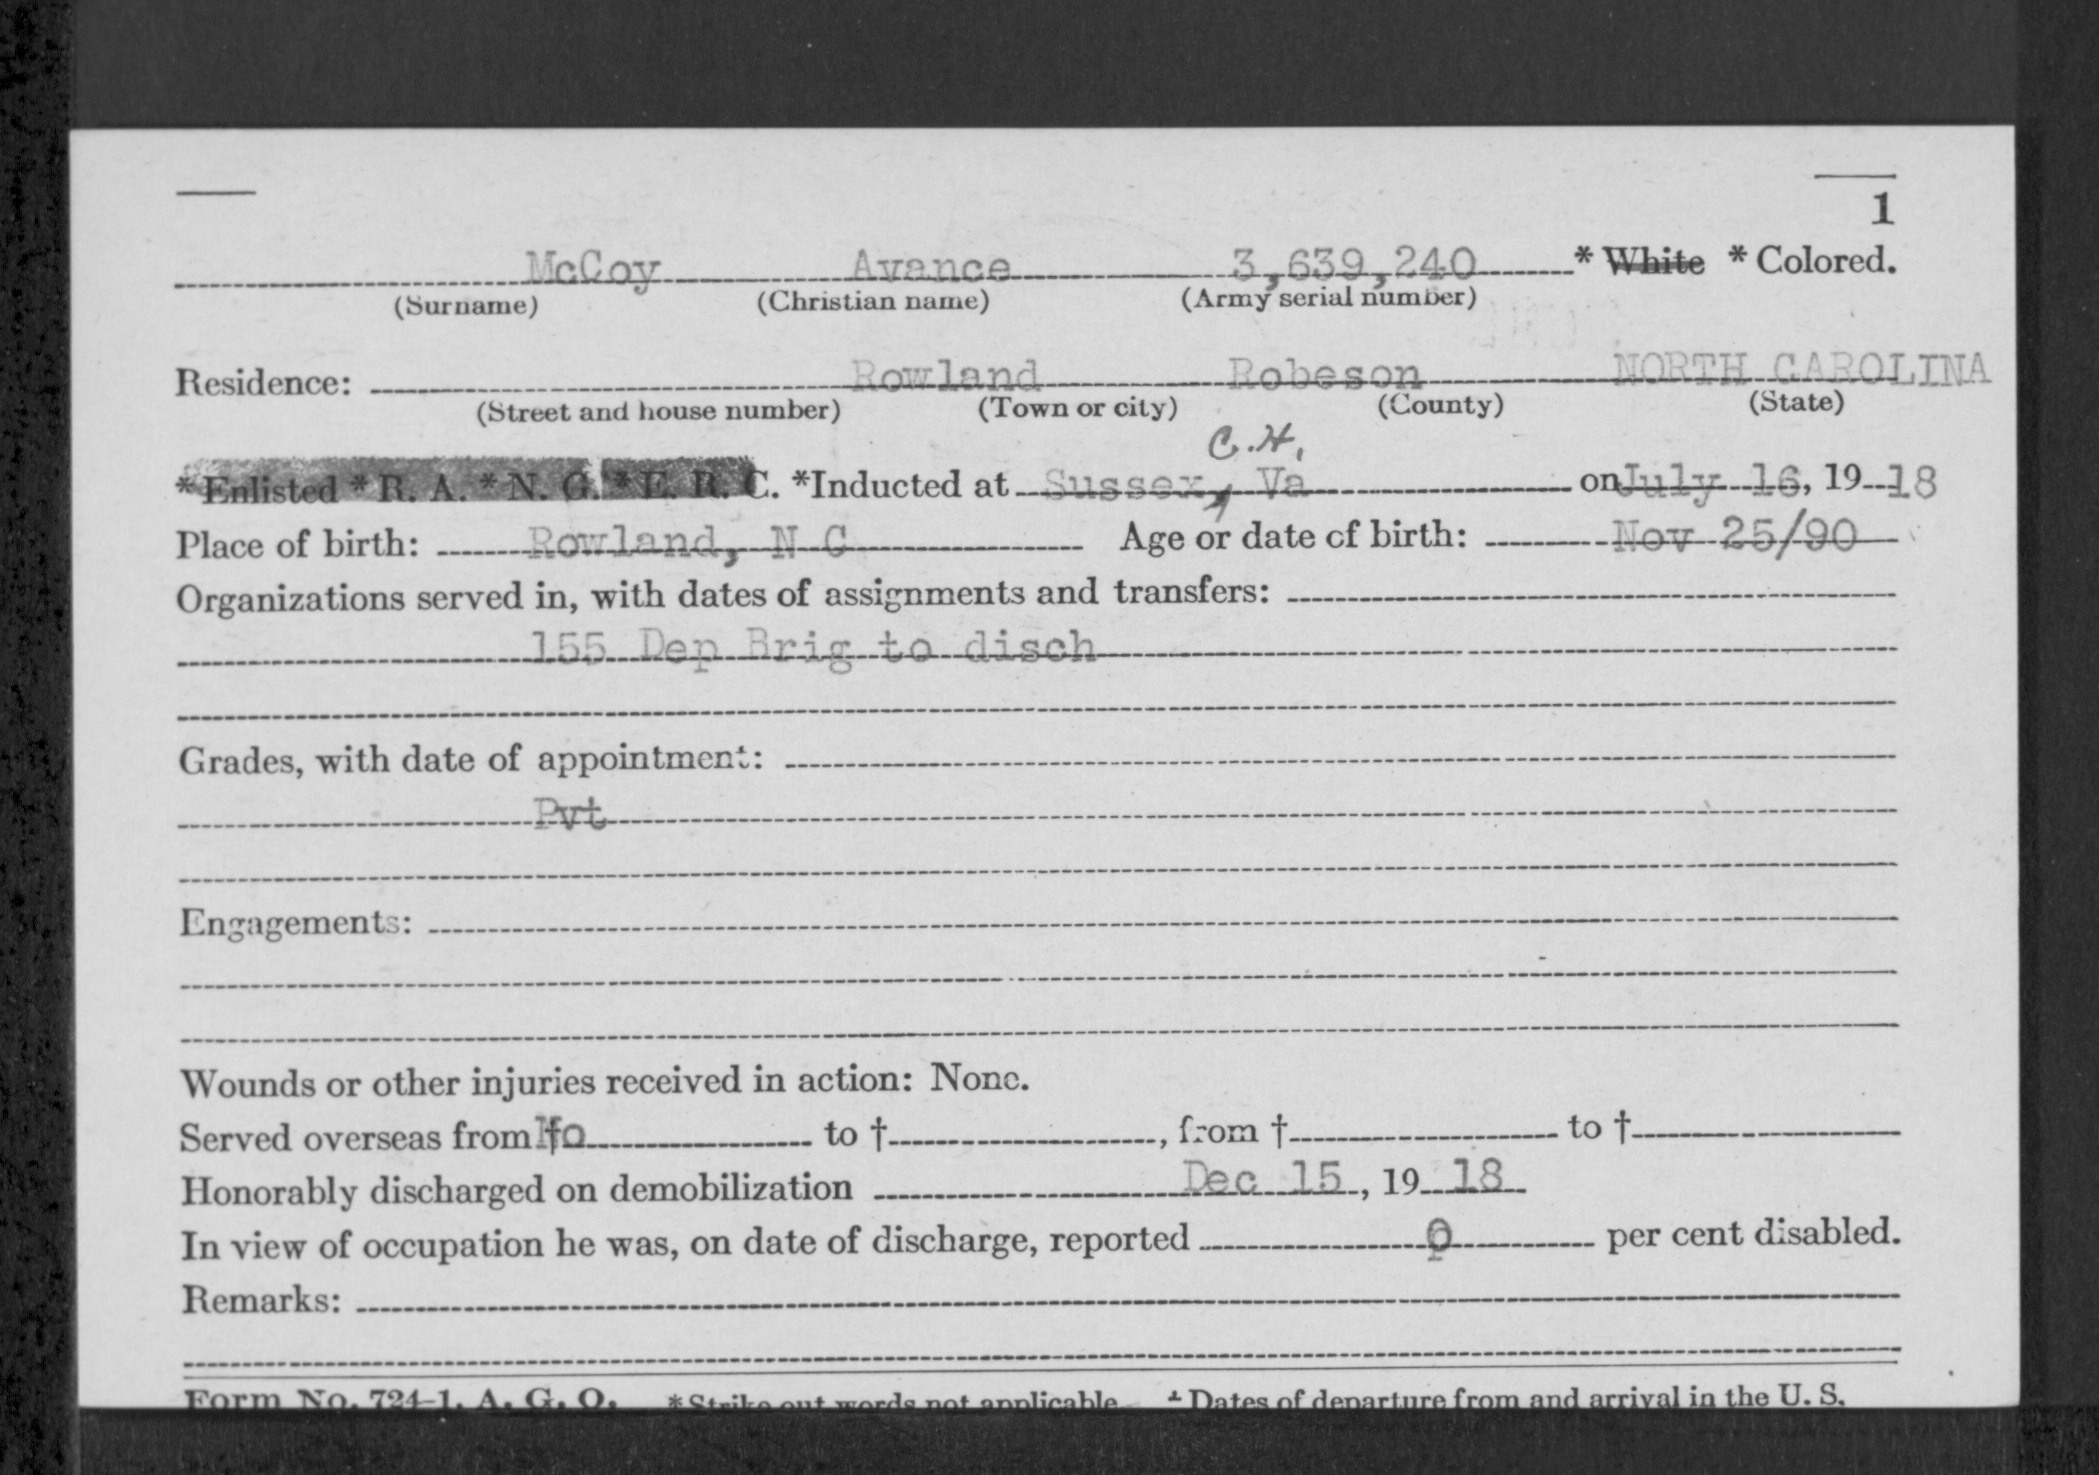 1
McCoy Avance 3,639,240 * White * Colored.
(Surname) (Christian name) (Army serial number)
Residence: Rowland Robeson NORTH CAROLINA
(Street and house number) (Town or city) (County) (State)
C.H.
*Enlisted *R. A. *N. G. *E. R. C. *Inducted at Sussex, Va on July 16, 19 18
Place of birth: Rowland, N C Age or date of birth: Nov 25/90
Organizations served in, with dates of assignments and transfers:
155 Dep Brig to disch
Grades, with date of appointment:
Pvt
Engagements:
Wounds or other injuries received in action: None.
Served overseas from † No to †, from † to †
Honorably discharged on demobilization Dec 15, 19 18
In view of occupation he was, on date of discharge, reported 0 per cent disabled.
Remarks:
Form No. 724-1, A. G. O. *Strike out words not applicable. † Dates of departure from and arrival in the U. S.